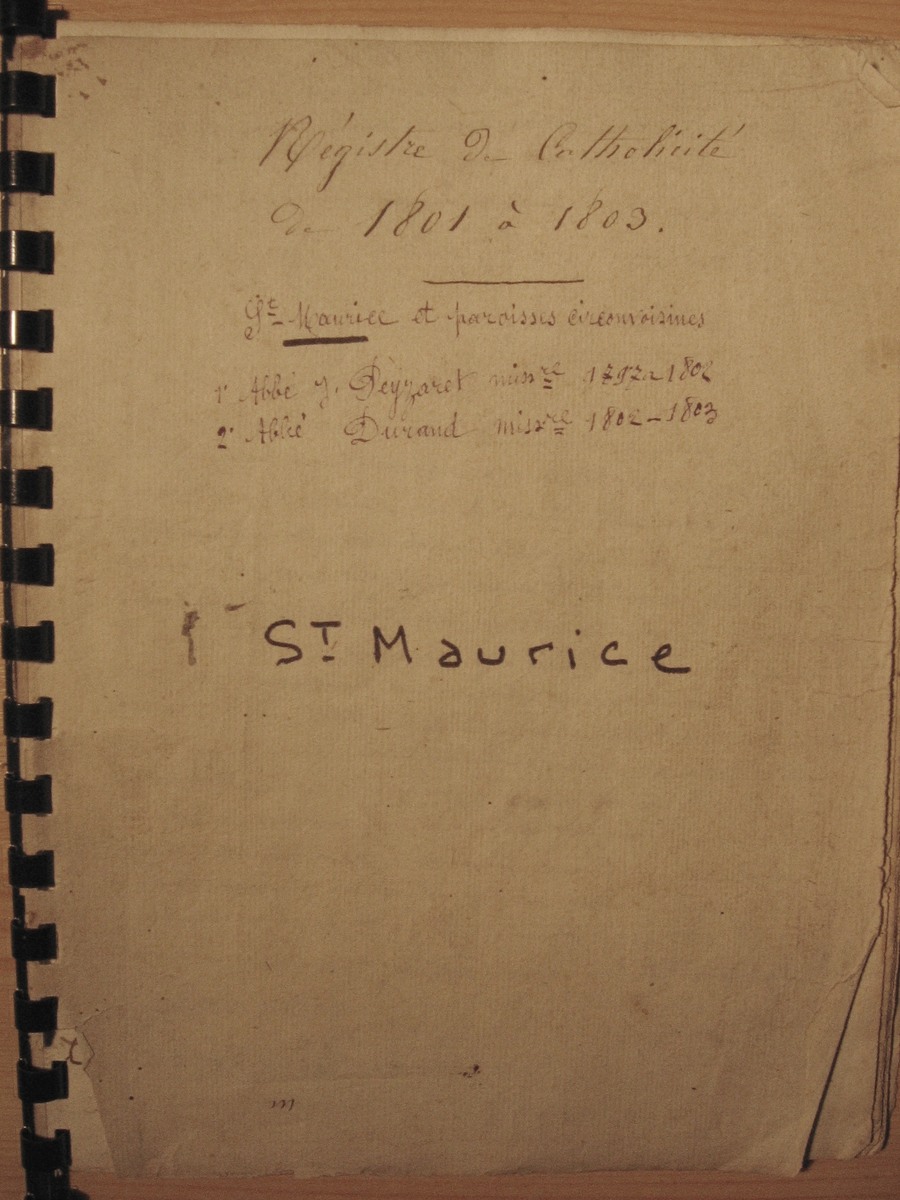 Régistre de Catholicité
de 1801 à 1803.
St Maurice et paroisses circonvoisines
1º Abbé J. Peyzaret missre 1797 à 1802
2º Abbé Durand missre 1802-1803
St Maurice
m